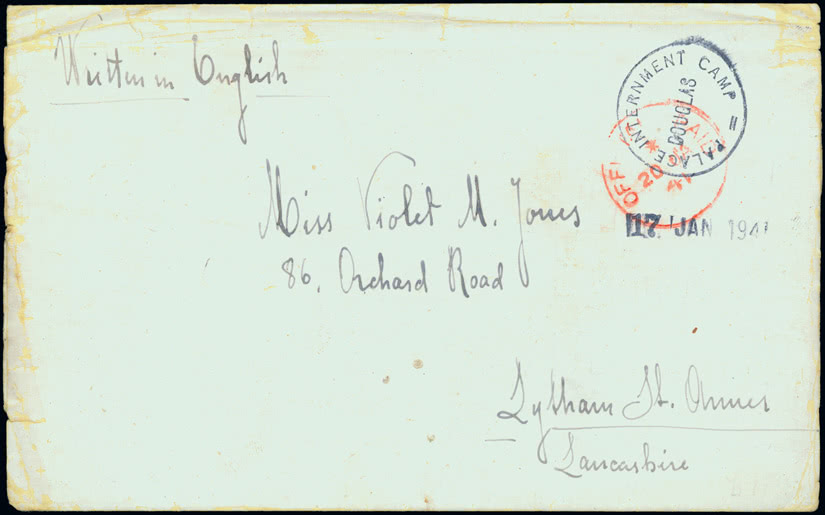 Written in English
PALACE INTERNMENT CAMP =
DOUGLAS
OFFI PAID
20 JA
41
17 JAN 1941
Miss Violet M. Jones
86, Orchard Road
Lytham St. Annes
Lancashire